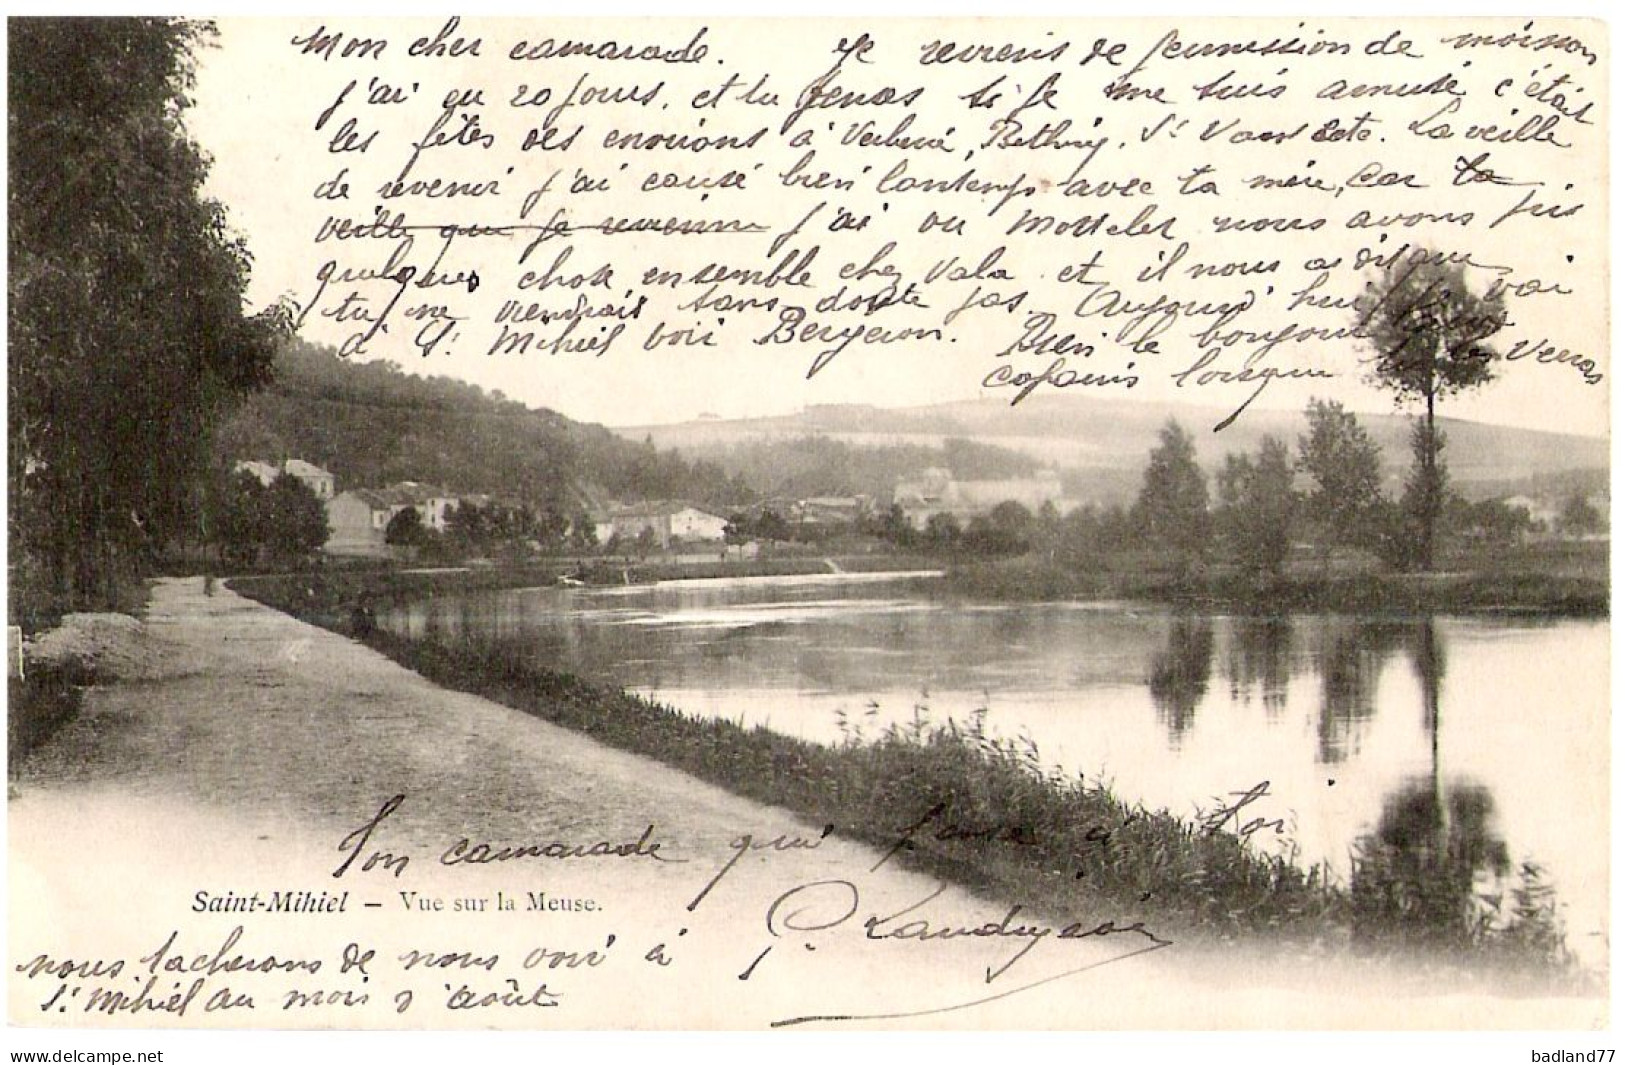 Mon cher camarade. Je reviens de permission de moisson
j'ai eu 20 jours. et tu penses si je me suis amusé c'était
les fêtes des environs à Verberie, Bethisy. St Vaast &ete. La veille
de revenir j'ai causé bien lontemps avec ta mère, car ta
veille que je revienne j'ai vu Mottelet nous avons pris
quelques chose ensemble chez Vala et il nous a dit que
tu ne viendrais sans doute pas. Aujourd'hui je vai
à St Mihiel voir Bergeron. Bien le bonjour
copains lorsque tu les verras
Ton camarade qui pense à toi
Saint-Mihiel – Vue sur la Meuse.
nous tacherons de nous voir à
St Mihiel au mois d'août
delcampe.net
badland77